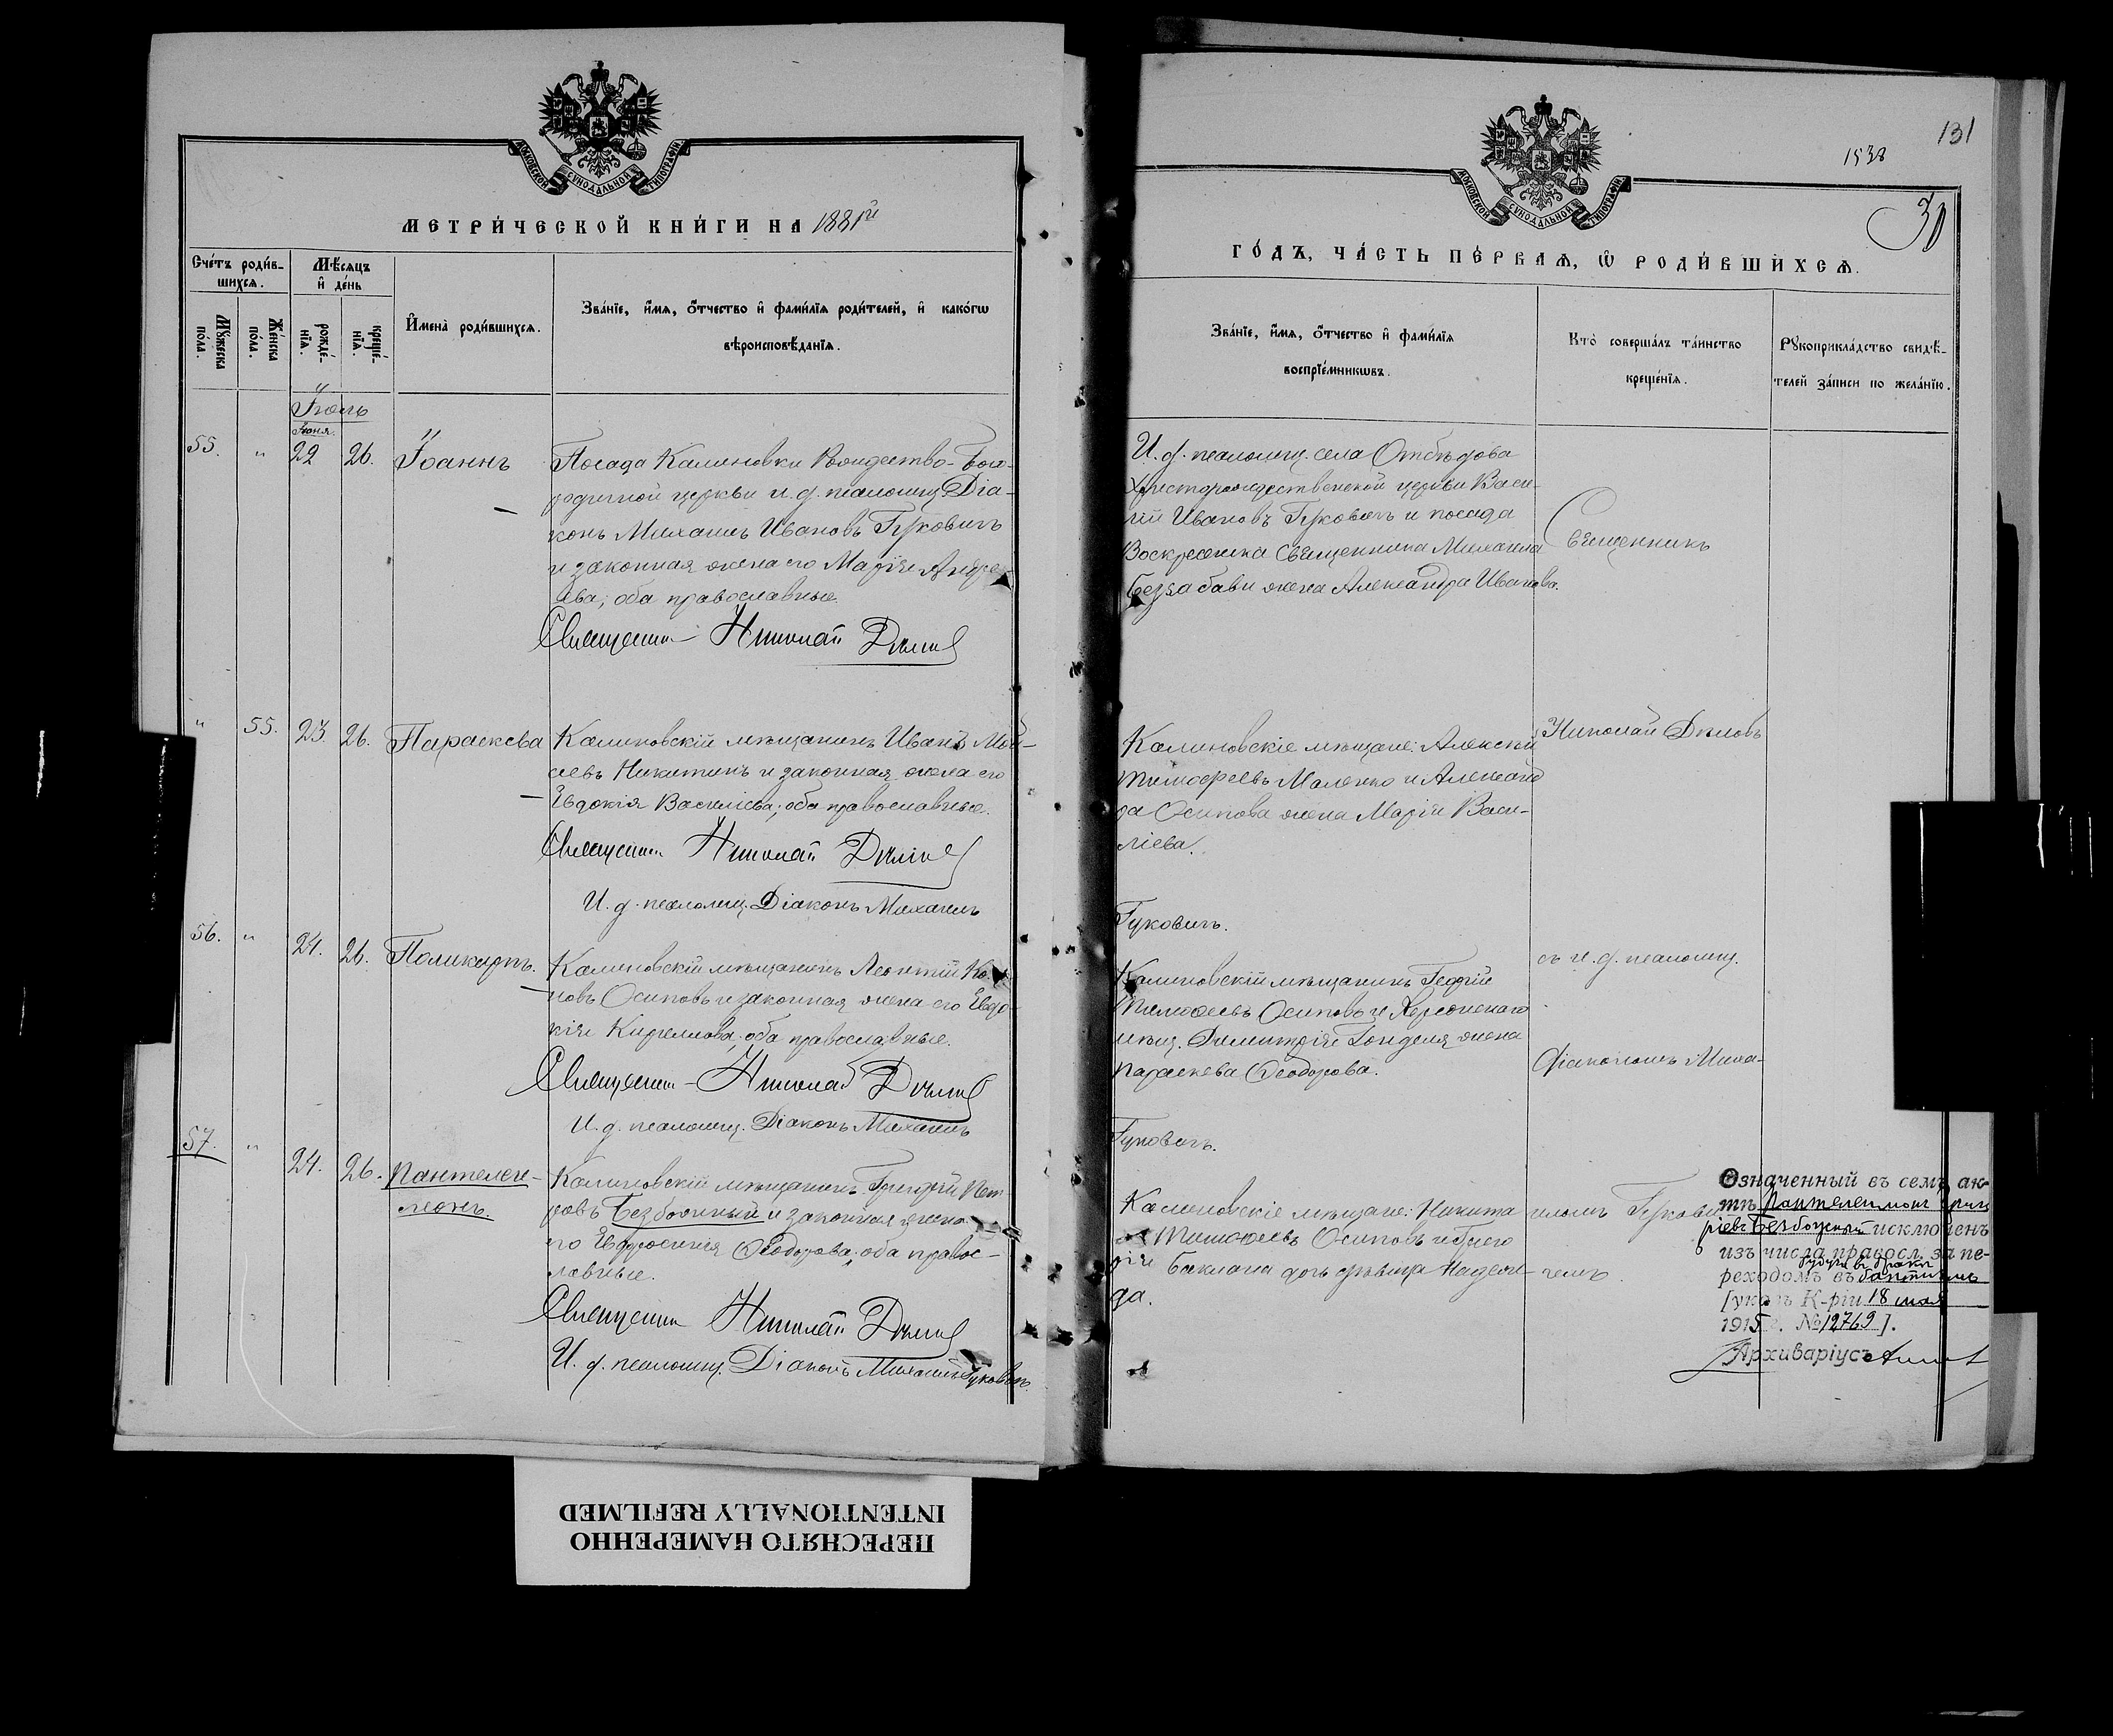 МОСКОВСКОЙ СѴНОДАЛЬНОЙ ТИПОГРАФІИ
МЕТРИ́ЧЕСКОЙ КНИ́ГИ НА 1881й
Сче́тъ роди́в-
шихсѧ.
Мѣ́сяцъ
и҆ де́нь
Мꙋ́жеска
по́ла.
Же́нска
по́ла.
рожде́-
нїѧ.
креще́-
нїѧ.
И҆мена̀ роди́вшихсѧ.
Зва́нїе, и҆́мѧ, ѻ҆́тчество и҆ фами́лїѧ роди́телей, и҆ како́гѡ
вѣроисповѣ́данїѧ.
Іюль
Іюня
55. " 22 26. Іоаннъ
Посада Калиновки Рождество-Бого-
родичной церкви и. д. псаломщ. Діа-
конъ Михаилъ Ивановъ Гуковичъ
и законная жена его Марія Андре-
ева; оба православные.
Священникъ Николай Дѣловъ
" 55. 23. 26. Параскева
Калиновскій мѣщанинъ Иванъ Мои-
сеевъ Никитинъ и законная жена его
Евдокія Василіева; оба православные.
Священникъ Николай Дѣловъ
И. д. псаломщ. Діаконъ Михаилъ
56. " 24. 26. Поликарпъ.
Калиновскій мѣщанинъ Леонтій
новъ Осиповъ и законная жена его Евдо-
кія Кириллова; оба православные.
Священникъ Николай Дѣловъ
И. д. псаломщ. Діаконъ Михаилъ
57. " 24. 26. Пантелеи-
монъ.
Калиновскій мѣщанинъ Григорій Пет-
ровъ Безбожный и законная жена
его Евфросинія Ѳеодорова; оба правос-
лавные.
Священникъ Николай Дѣловъ
И. д. псаломщ. Діаконъ Михаилъ Гуковичъ
131
1538
30
МОСКОВСКОЙ СѴНОДАЛЬНОЙ ТИПОГРАФІИ
ГО́ДЪ, ЧА́СТЬ ПЕ́РВАѦ, Ѡ҆ РОДИ́ВШИХСѦ.
Зва́нїе, и҆́мѧ, ѻ҆́тчество и҆ фами́лїѧ
воспрїе́мникѡвъ.
Кто̀ соверша́лъ та́инство
креще́нїѧ.
Рꙋкоприкла́дство свидѣ́-
телей за́писи по жела́нїю.
И. д. псаломщ. села Отбѣдова
Христорождественской церкви Васи-
лій Ивановъ Гуковичъ и посада
Воскресенска Священника Михаила
Беззабави жена Александра Иванова.
Священникъ
Калиновскіе мѣщане: Алексѣй
Тимофеевъ Маленко и Александ
ра Осипова жена Марія Васи-
ліева.
Николай Дѣловъ
Гуковичъ.
Калиновскій мѣщанинъ Георгій
Тимоѳеевъ Осиповъ и Херсонскаго
мѣщ. Димитрія жена
Параскева Ѳеодорова.
съ и. д. псаломщ.
Діакономъ Миха-
Гуковичъ.
Калиновскіе мѣщане: Никита
Тимоѳеевъ Осиповъ и Григо
рія Баклана дочь дѣвица Надеж-
да.
иломъ Гукови-
чемъ.
Означенный въ семъ ак-
тѣ Пантелеимонъ Григо
ріевъ Безбожный исключенъ
изъ числа правосл. за пе-
реходомъ въ баптизмъ
[указъ К-ріи 18 мая
1915 г. № 12769].
Архиваріусъ
ПЕРЕСНЯТО НАМЕРЕННО
INTENTIONALLY REFILMED